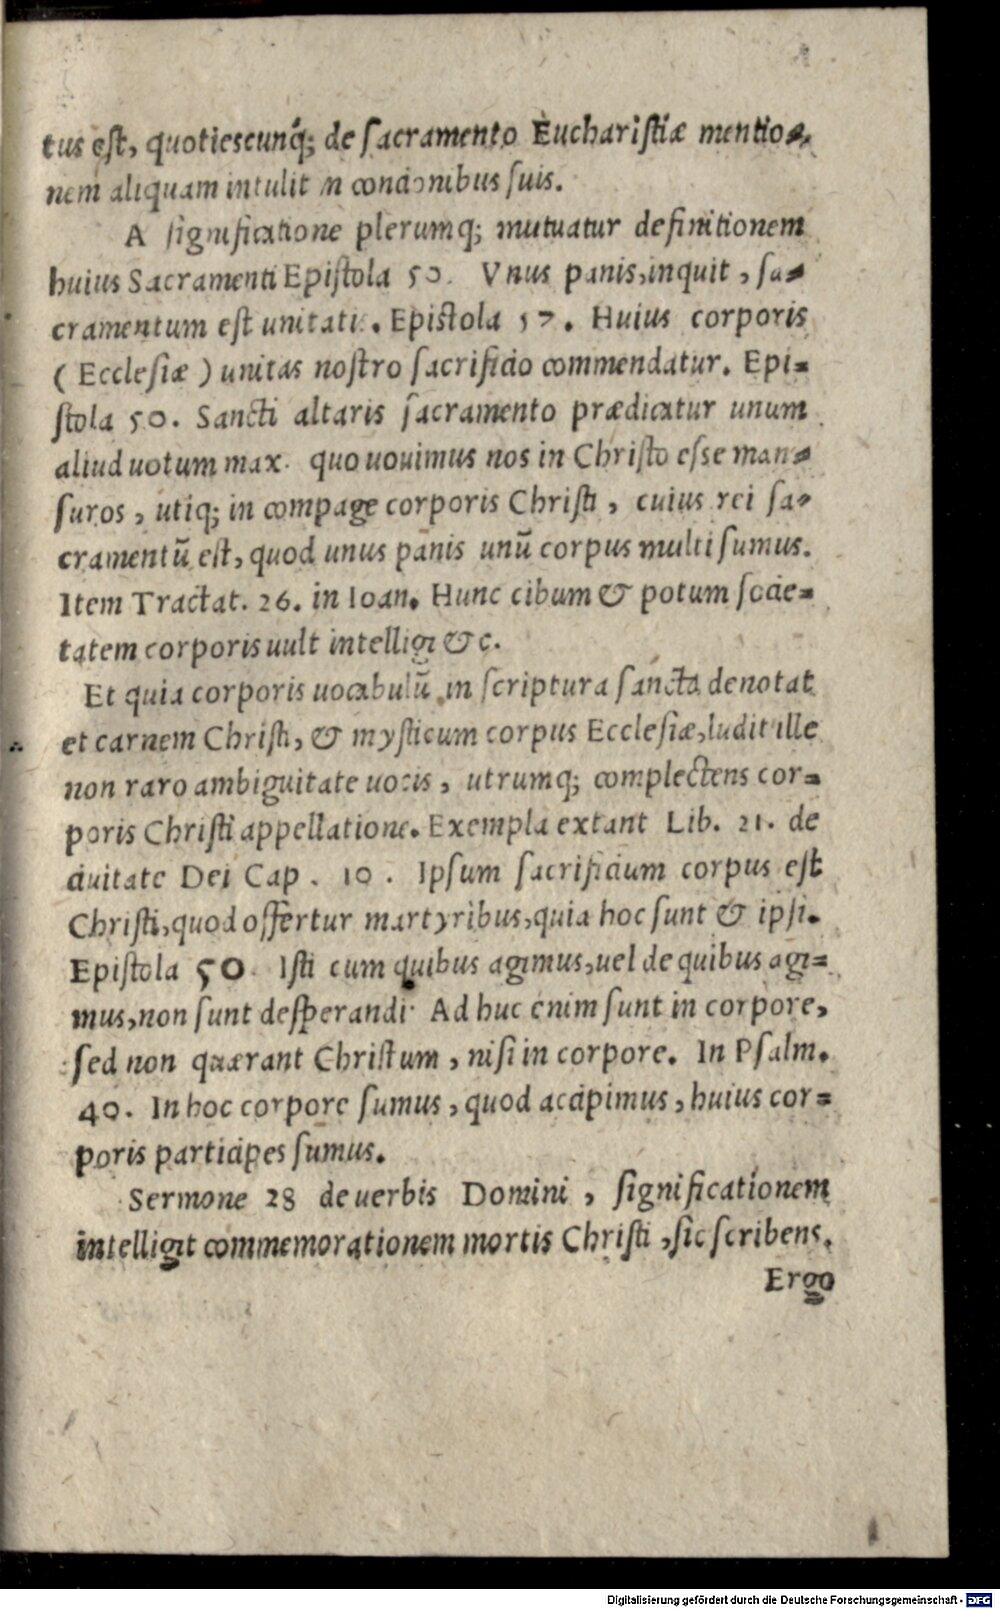 tus est, quotiescunq́; de sacramento Eucharistiæ mentio-
nem aliquam intulit in concionibus suis.
A significatione plerumq; mutuatur definitionem
huius Sacramenti Epistola 50. Vnus panis, inquit, sa-
cramentum est unitatis. Epistola 57. Huius corporis
(Ecclesiæ) unitas nostro sacrificio commendatur. Epi-
stola 50. Sancti altaris sacramento prædicatur unum
aliud uotum max. quo uouimus nos in Christo esse man-
suros, utiq; in compage corporis Christi, cuius rei sa-
cramentū est, quod unus panis unū corpus multi sumus.
Item Tractat. 26. in Ioan. Hunc cibum & potum socie-
tatem corporis uult intelligi &c.
Et quia corporis uocabulū in scriptura sancta denotat
et carnem Christi, & mysticum corpus Ecclesiæ, ludit ille
non raro ambiguitate uocis, utrumq; complectens cor-
poris Christi appellatione. Exempla extant Lib. 21. de
ciuitate Dei Cap. 10. Ipsum sacrificium corpus est
Christi, quod offertur martyribus, quia hoc sunt & ipsi.
Epistola 50. Isti cum quibus agimus, uel de quibus agi-
mus, non sunt desperandi. Ad huc enim sunt in corpore,
sed non quærant Christum, nisi in corpore. In Psalm.
40. In hoc corpore sumus, quod accipimus, huius cor-
poris participes sumus.
Sermone 28 de uerbis Domini, significationem
intelligit commemorationem mortis Christi, sic scribens.
Ergo
Digitalisierung gefördert durch die Deutsche Forschungsgemeinschaft - DFG